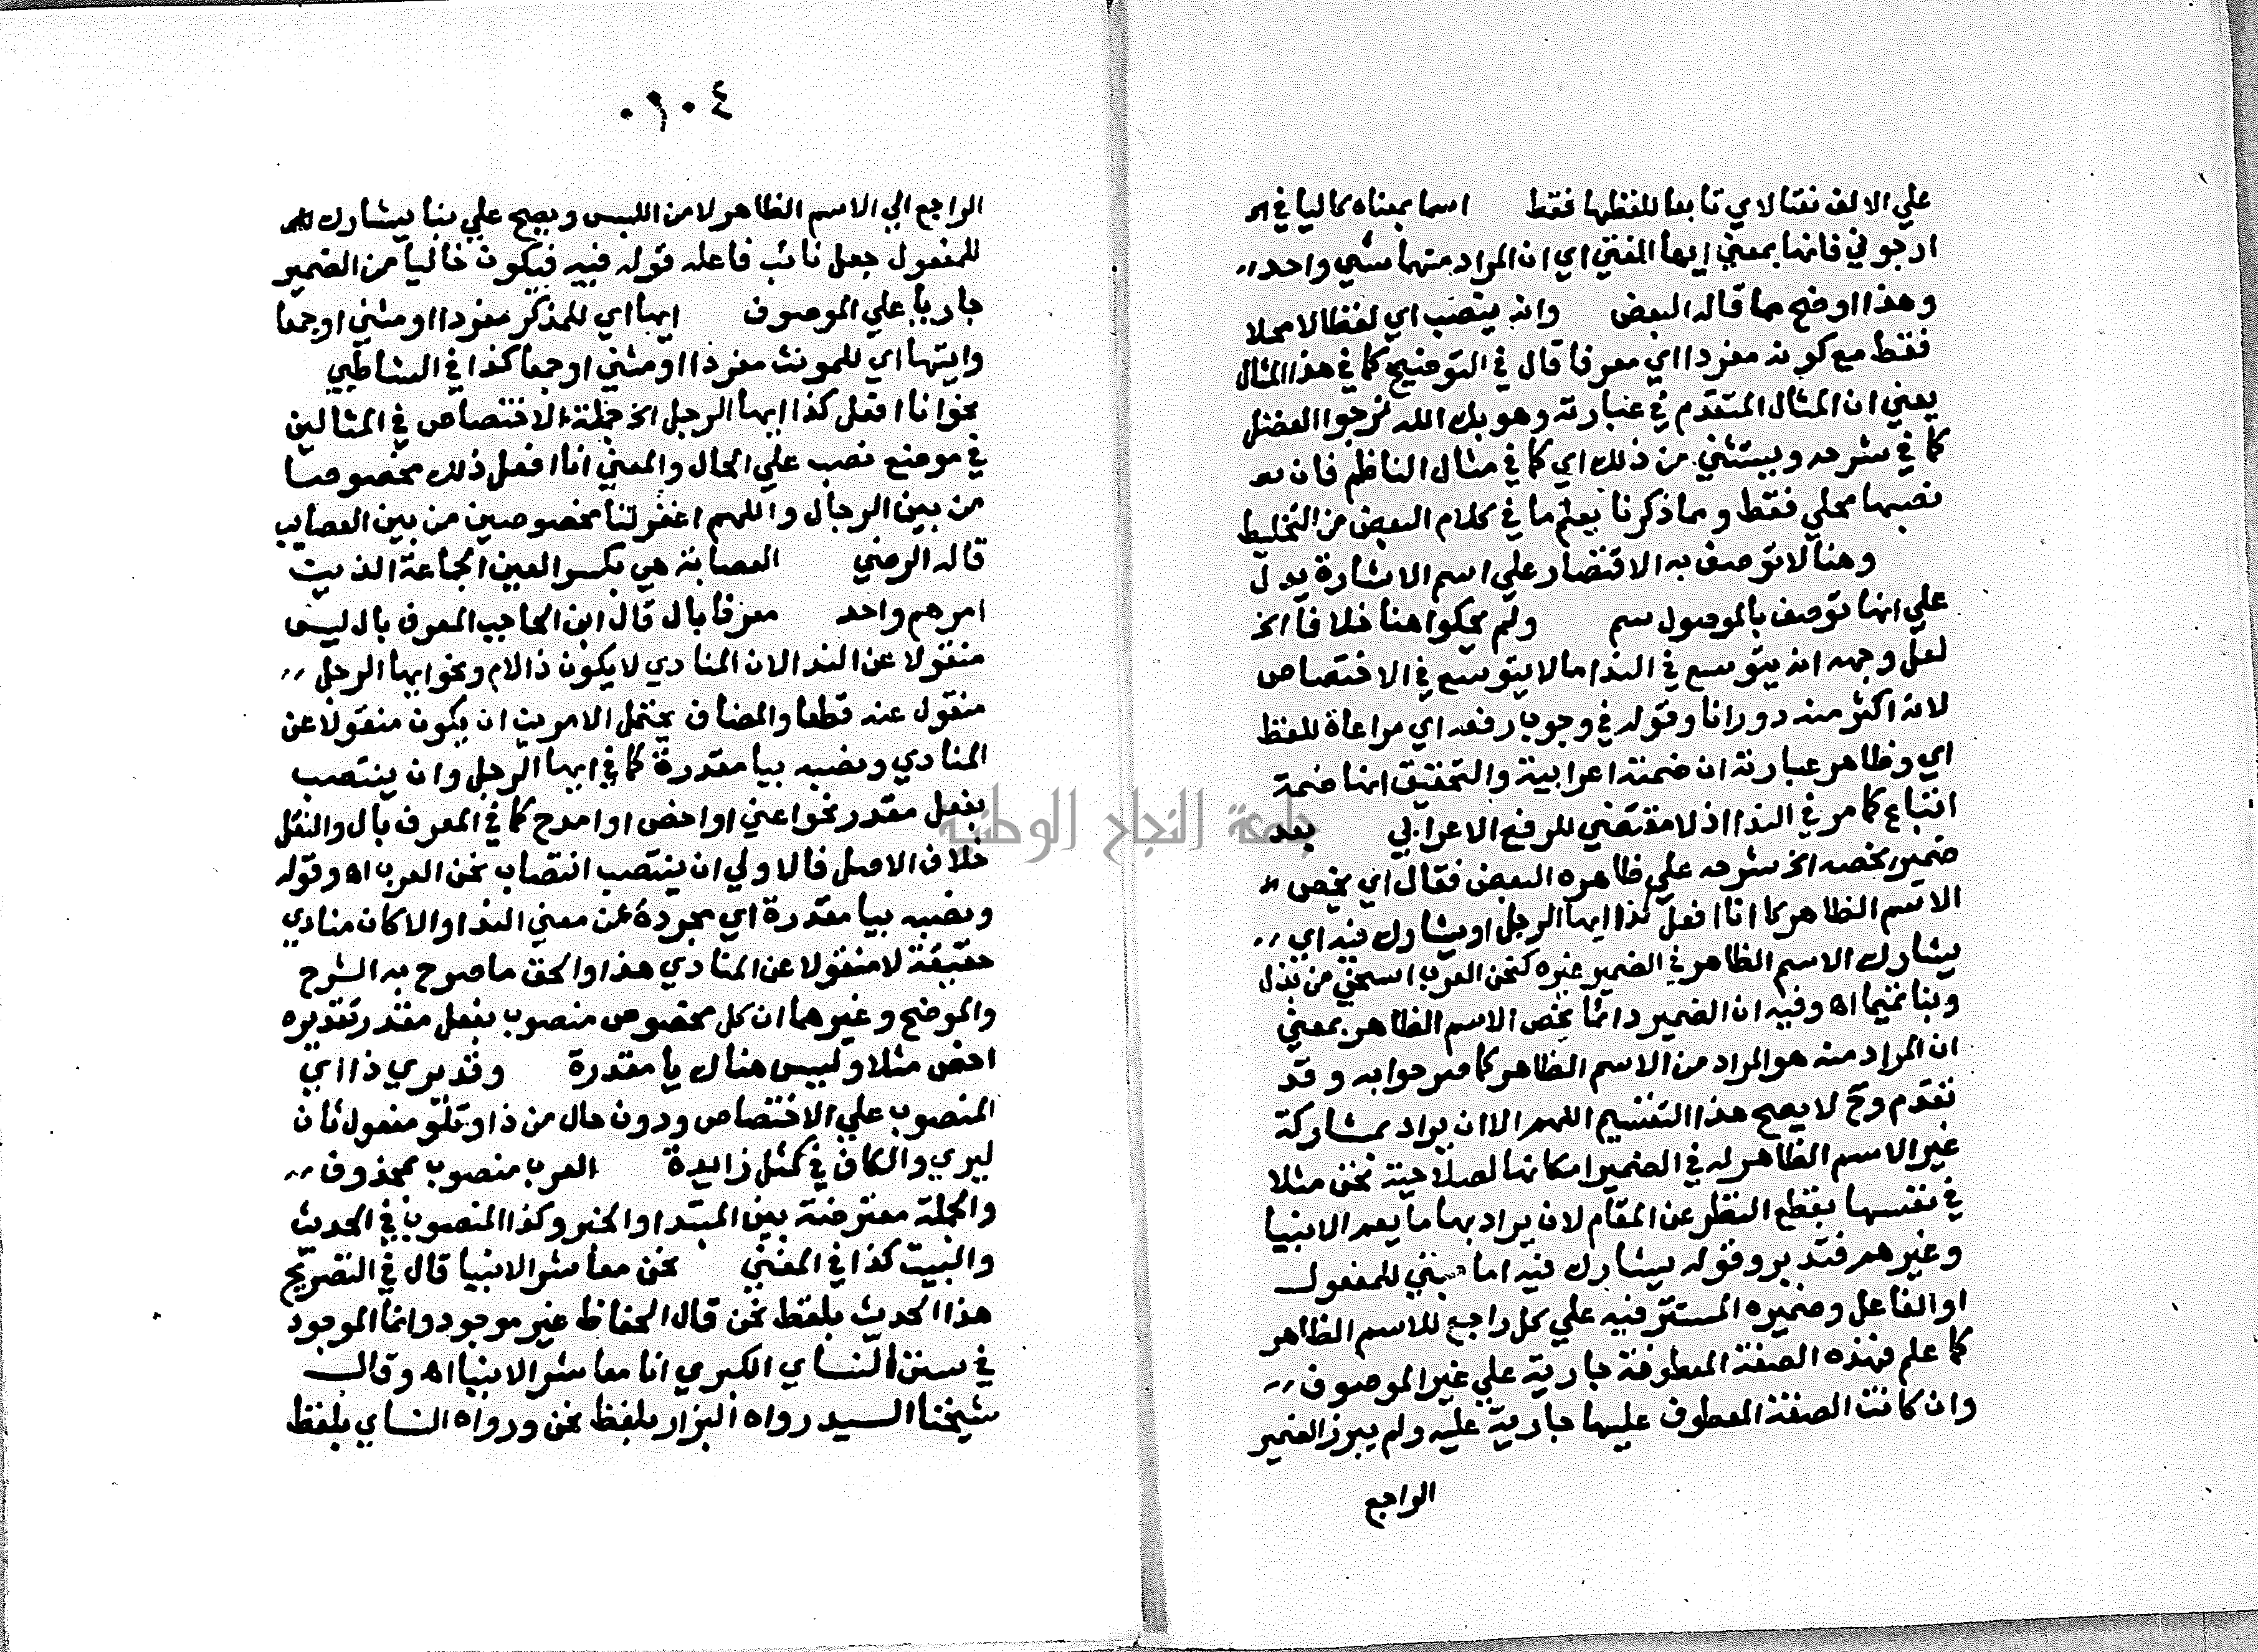 علي الالف نعتا لاي تابعا للفظها فقط اسما بمعناه كاليا في يه
ارجوني فانها بمعني ايها الفتي اي ان المراد منهما شي واحد
وهذا اوضح مما قاله البعض وانه ينصب اي لفظا لا محلا
فقط مع كونه مفردا اي معرفا قال في التوضيح كما في هذا المثال
يعني ان المثال المتقدم في عبارته وهو بك الله نرجوا الفضل
كما في شرحه ويستثني من ذلك اي كما في مثال الناظم فان
نصبها محلي فقط ومما ذكرنا يعلم ما في كلام البعض من التخليط
وهنا لا توصف به الاقتصار علي اسم الاشارة يدل
علي انها توصف بالموصول سم ولم يحكوا هنا خلافا الخ
لعل وجهه انه يتوسع في الندا ما لا يتوسع في الاختصاص
لانه اكثر منه دورانا وقوله في وجوب رفعه اي مراعاة للفظ
اي وظاهر عبارته ان ضمته اعرابية والتحقيق انها ضمة
اتباع كما مر في الندا اذ لا مقتضي للرفع الاعرابي بعد
ضمير يخصه الخ شرحه علي ظاهره البعض فقال اي يخص
الاسم الظاهر كانا افعل كذا ايها الرجل او يشارك فيه اي
يشارك الاسم الظاهر في الضمير غيره كنحن العرب اسخي من بذل
وبنا تميما اه وفيه ان الضمير دائما يخص الاسم الظاهر بمعني
ان المراد منه هو المراد من الاسم الظاهر كما مر جوابه وقد
تقدم وح لا يصح هذا التقسيم اللهم الا ان يراد بمشاركة
غير الاسم الظاهر له في الضمير امكانها لصلاحية نحن مثلا
في نفسها بقطع النظر عن المقام لان يراد بها ما يعم الانبيا
وغيرهم فتدبر وقوله يشارك فيه اما مبني للمفعول
او الفاعل وضميره المستتر فيه علي كل راجع للاسم الظاهر
كما علم فهذه الصفة المعطوفة جارية علي غير الموصوف
وان كانت الصفة المعطوف عليها جارية عليه ولم يبرز الضمير
الراجع
٠١٠٤
الراجع الي الاسم الظاهر لامن اللبس ويصح علي بنا يشارك
للمفعول جعل نائب فاعله قوله فيه فيكون خاليا من الضمير
جاريا علي الموصوف ايها اي للمذكر مفردا او مثني او جمعا
وايتها اي للمونث مفردا او مثني او جمعا كذا في الشاطبي
نحو انا افعل كذا ايها الرجل الخ جملة الاختصاص في المثالين
في موضع نصب علي الحال والمعني انا افعل ذلك مخصوصا
من بين الرجال واللهم اغفر لنا مخصوصين من بين العصايب
قاله الرضي العصابة هي بكسر العين الجماعة الذين
امرهم واحد معرفا بال قال ابن الحاجب المعرف بال ليس
منقولا عن الندا لان المنادي لا يكون ذا لام ونحو ايها الرجل
منقول عنه قطعا والمضاف يحتمل الامرين ان يكون منقولا عن
المنادي ونصبه بيا مقدرة كما في ايها الرجل وان ينتصب
بفعل مقدر نحو اعني او اخص او امدح كما في المعرف بال والنقل
خلاف الاصل فالاولي ان ينتصب انتصاب نحن العرب اه وقوله
ونصبه بيا مقدرة اي مجردة عن معني الندا والا كان منادي
حقيقة لا منقولا عن المنادي هذا والحق ما صرح به الشرح
والموضح وغيرهما ان كل مخصوص منصوب بفعل مقدر تقديره
اخص مثلا وليس هناك يا مقدرة وقد يري ذا اي
المنصوب علي الاختصاص ودون حال من ذا وتلو مفعول ثان
ليري والكاف في كمثل زايدة العرب منصوب بمحذوف
والجملة معترضة بين المبتدا والخبر وكذا المنصوب في الحديث
والبيت كذا في المغني نحن معاشر الانبيا قال في التصريح
هذا الحديث بلفظ نحن قال الحفاظ غير موجود وانما الموجود
في سنن النساي الكبري انا معاشر الانبيا اه وقال
شيخنا السيد رواه البزار بلفظ نحن ورواه النساي بلفظ
جامعة النجاح الوطنية